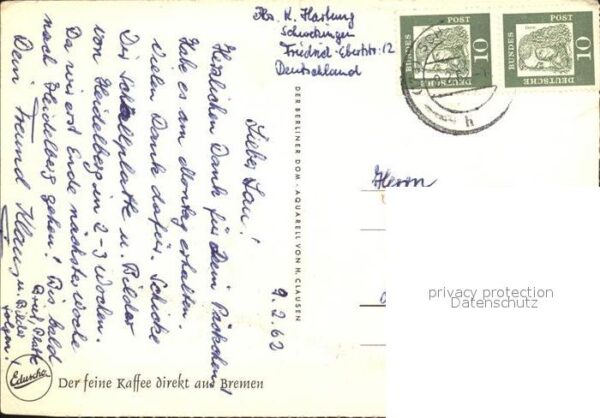 Abs. K. Hartung
Schwetzingen
Friedrich-Ebertstr. 12
Deutschland
DEUTSCHE BUNDESPOST 10
DEUTSCHE BUNDESPOST 10
9.2.62
Lieber Jan!
Herzlichen Dank für Dein Päckchen!
Habe es am Montag erhalten.
Vielen Dank dafür. Schicke
Dir Schallplatte u. Bilder
von Heidelberg in 2-3 Wochen.
Da wir erst Ende nächster Woche
nach Heidelberg gehen! Bis bald
Dein Freund Klaus
Brief, Platte
u. Bilder
folgen!
DER BERLINER DOM - AQUARELL VON H. CLAUSEN
Herrn
privacy protection
Datenschutz
Eduscho
Der feine Kaffee direkt aus Bremen